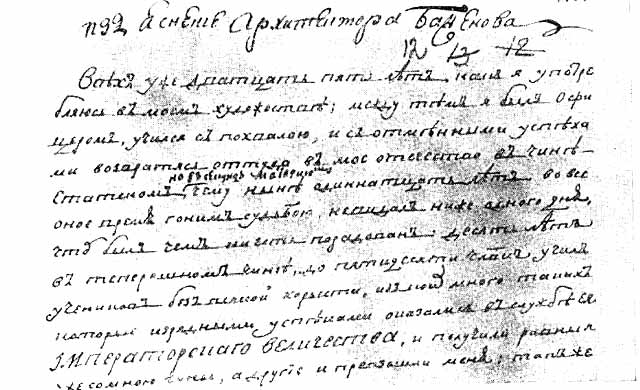 изъ аснете Архитектора Баженова
12 13 12
Всѣхъ уже дватцать пять лѣтъ, какъ я употре
бляюсь въ моемъ художествѣ; между тѣмъ я былъ Офи
церомъ, учился съ похвалою, и съ отмѣнными успѣха
ми возвратясь оттуда въ мое отечество въ чинѣ
Статскомъ, чему нынѣ одиннатцать лѣтъ во все
оное время гонимъ судьбою, невидалъ ниже одного дня,
чтоб былъ чемъ порадованъ: десять лѣтъ
въ теперешномъ чинѣ, до пятидесяти челов. училъ
учениковъ безъ всякой корысти, изъ коих много такихъ
которые изрядными успѣхами оказались въ службѣ Ея
Императорскаго величества, и получили равныя
же сомною чины, а другіе и превзошли меня; также